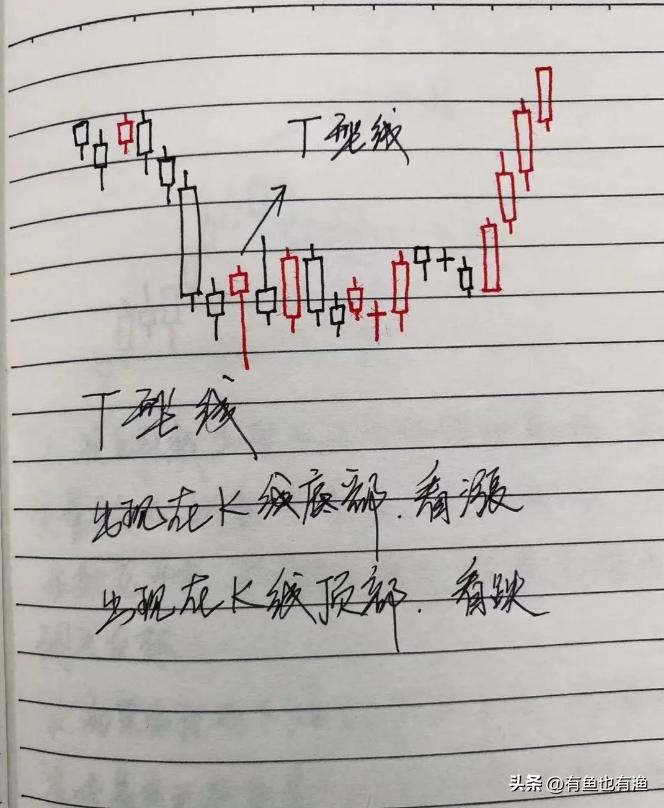 T型线
T型线
出现在K线底部.看涨
出现在K线顶部.看跌
头条 @有鱼也有渔